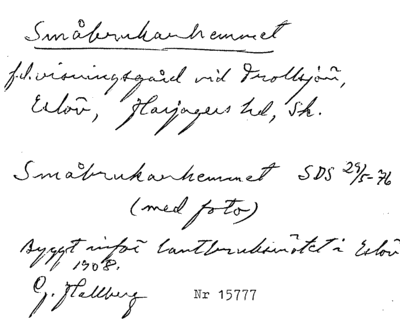 Småbrukarhemmet
f.d. visningsgård vid Trollsjön,
Eslöv, Harjagers hd, Sk.
Småbrukarhemmet SDS 29/5-76
(med foto)
Byggt inför lantbruksmötet i Eslöv
1908.
G. Hallberg Nr 15777